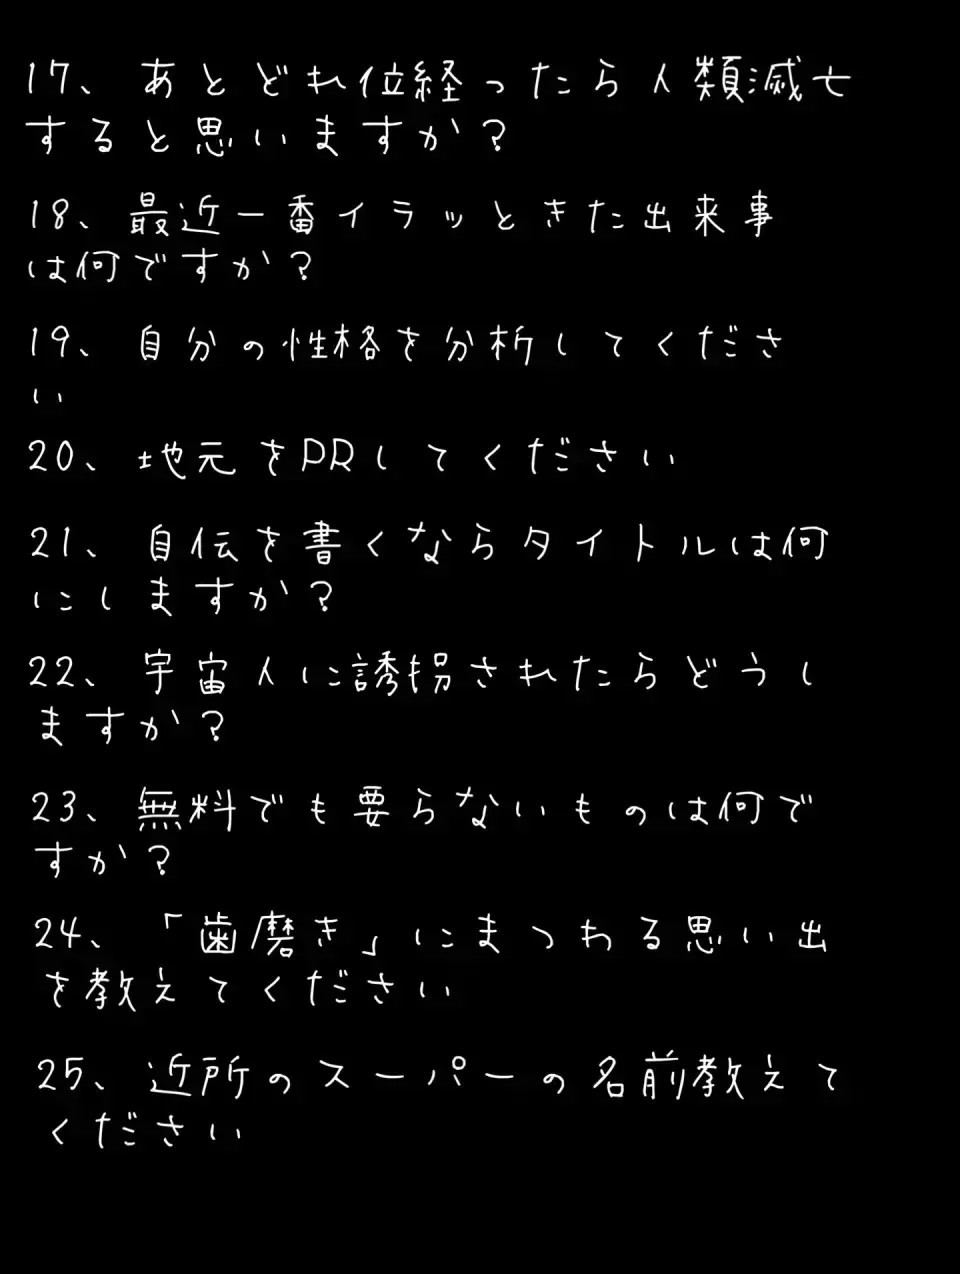 17、あとどれ位経ったら人類滅亡
すると思いますか?
18、最近一番イラッときた出来事
は何ですか?
19、自分の性格を分析してくださ
い
20、地元をPRしてください
21、自伝を書くならタイトルは何
にしますか?
22、宇宙人に誘拐されたらどうし
ますか?
23、無料でも要らないものは何で
すか?
24、「歯磨き」にまつわる思い出
を教えてください
25、近所のスーパーの名前教えて
ください